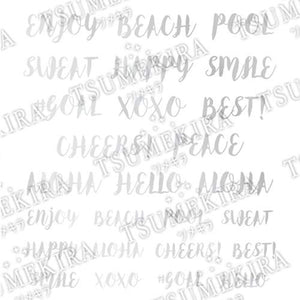 ENJOY BEACH POOL
SWEAT HAPPY SMILE
#GOAL XOXO BEST!
CHEERS! PEACE
ALOHA HELLO ALOHA
ENJOY BEACH POOL SWEAT
HAPPY ALOHA CHEERS! BEST!
SMILE XOXO #GOAL HELLO
TSUMEKIRA
ツメキラ